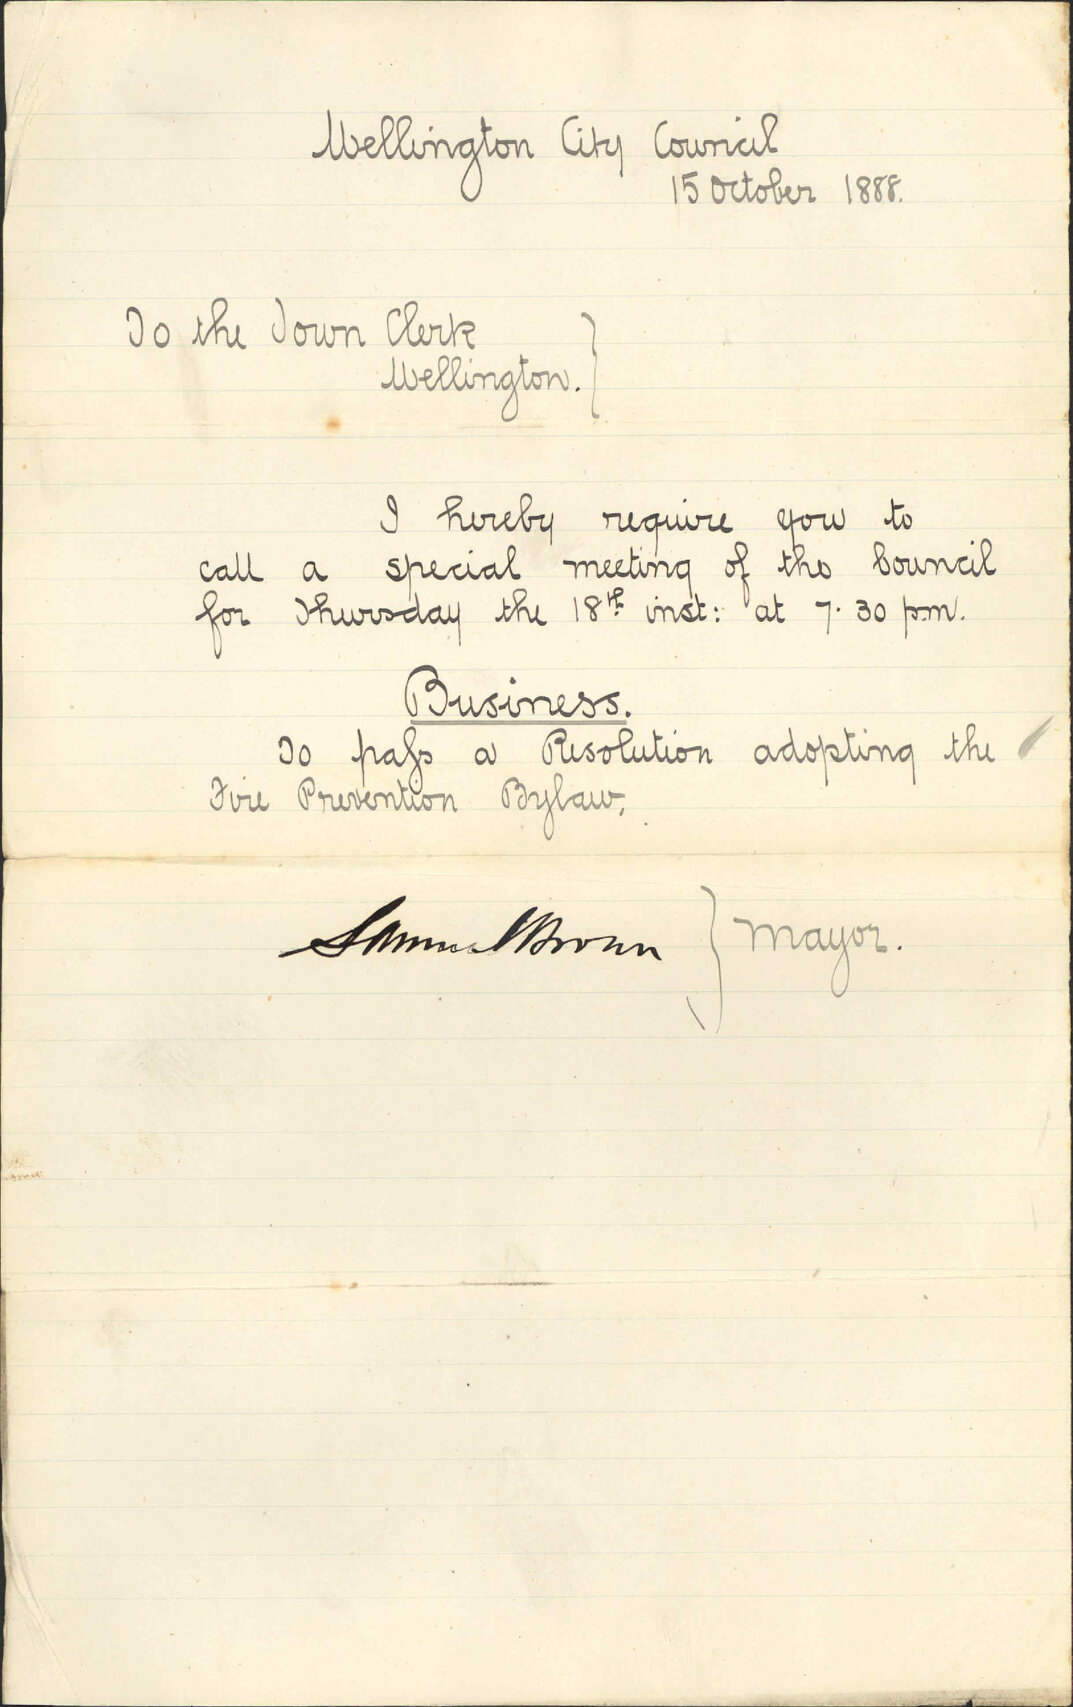 Wellington City Council
15 October 1888.
To the Town Clerk
Wellington.
I hereby require you to
call a special meeting of the Council
for Thursday the 18th inst: at 7.30 p.m.
Business.
To pass a Resolution adopting the
Fire Prevention Bylaw.
Samuel Brown } Mayor.